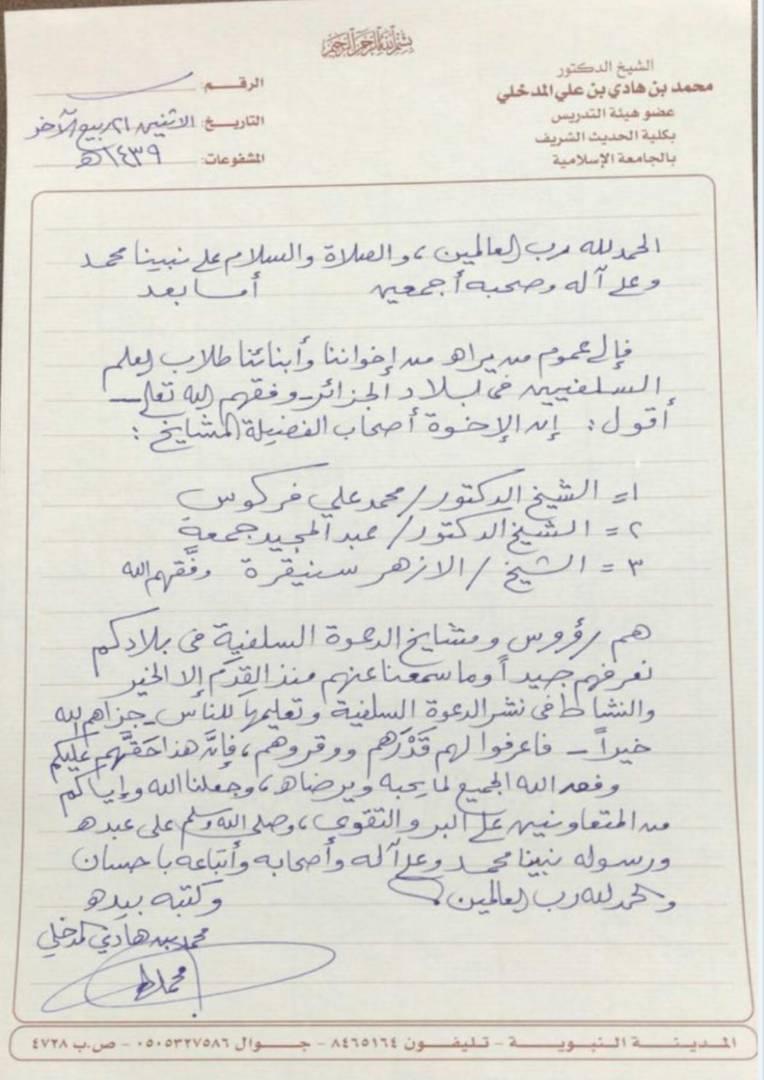 بسم الله الرحمن الرحيم
الشيخ الدكتور
محمد بن هادي بن علي المدخلي
عضو هيئة التدريس
بكلية الحديث الشريف
بالجامعة الإسلامية
الرقـم:
التاريخ: الاثنين ٢١ ربيع الآخر
المشفوعات: ١٤٣٩هـ
الحمد لله رب العالمين، والصلاة والسلام على نبينا محمد
وعلى آله وصحبه أجمعين أما بعد
فإلى عموم من يراه من إخواننا وأبنائنا طلاب العلم
السلفيين في بلاد الجزائر - وفقهم الله تعالى -
أقول: إن الإخوة أصحاب الفضيلة المشايخ:
١= الشيخ الدكتور/ محمد علي فركوس
٢= الشيخ الدكتور/ عبد المجيد جمعة
٣= الشيخ/ الازهر سنيقرة وفقهم الله
هم رؤوس ومشايخ الدعوة السلفية في بلادكم
نعرفهم جيداً وما سمعنا عنهم منذ القِدَم إلا الخير
والنشاط في نشر الدعوة السلفية وتعليمها للناس - جزاهم الله
خيراً - فاعرفوا لهم قَدْرَهم ووقروهم، فإنَّ هذا حَقَّهم عليكم
وفق الله الجميع لما يحبه ويرضاه، وجعلنا الله وإياكم
من المتعاونين على البر والتقوى، وصلى الله وسلم على عبده
ورسوله نبينا محمد وعلى آله وأصحابه وأتباعه باحسان
والحمد لله رب العالمين وكتبه بيده
محمد بن هادي المدخلي
المدينـة النبويـة - تليفون ٨٤٦٥١٦٤ - جـوال ٠٥٠٥٣٢٧٥٨٦ - ص.ب ٤٧٢٨